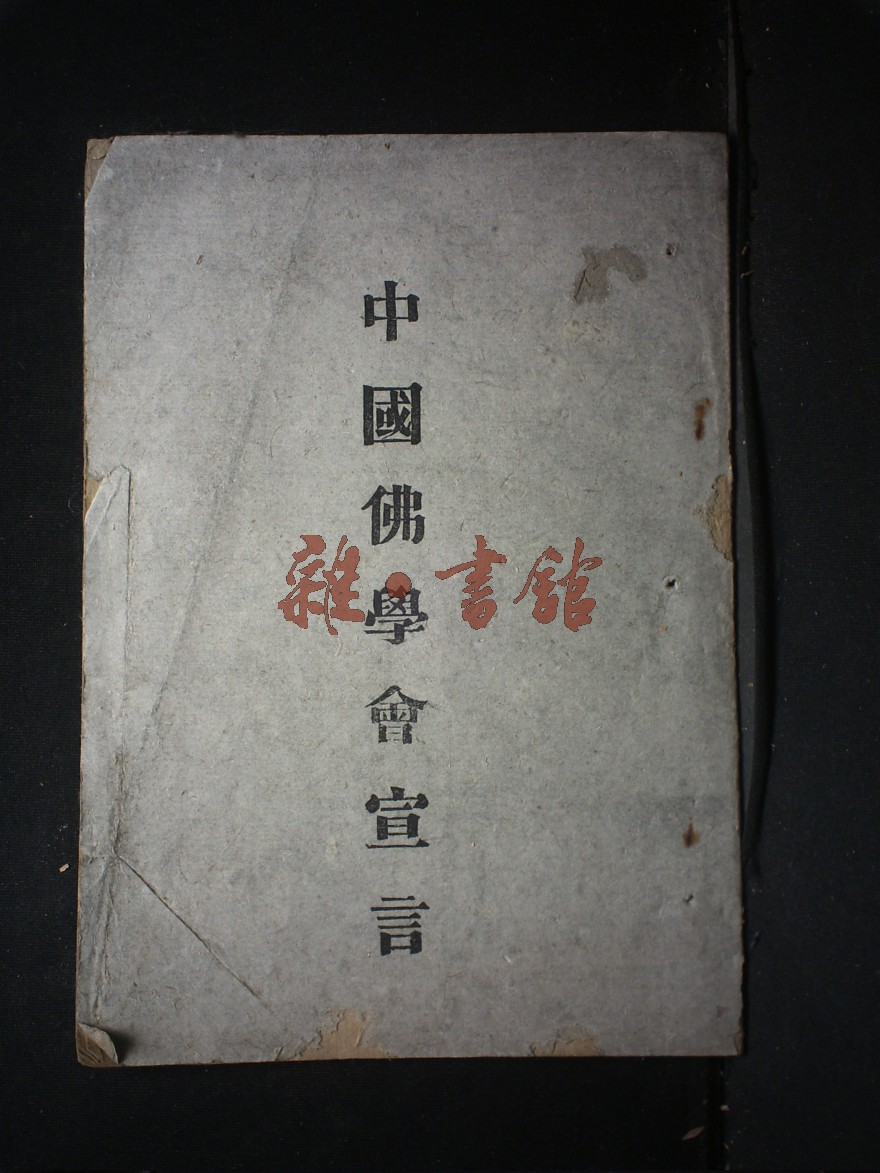 中國佛學會宣言
雜·書館